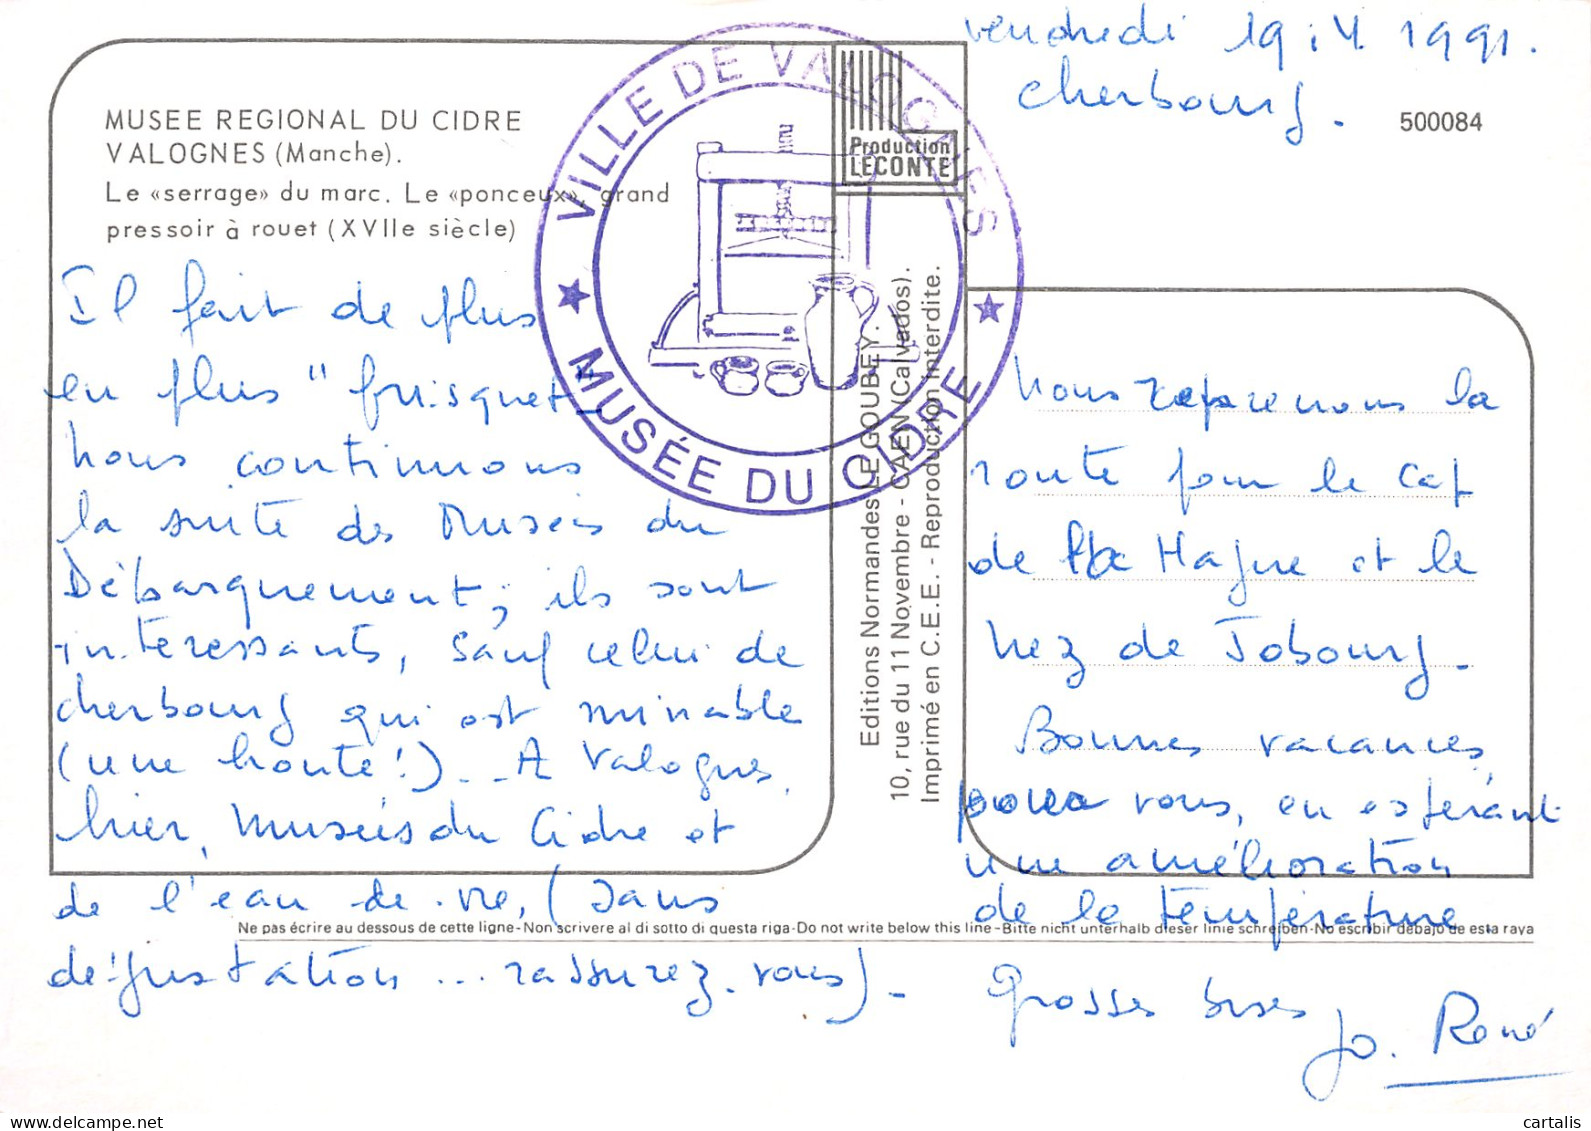 vendredi 19.4.1991.
Cherbourg.
500084
MUSEE REGIONAL DU CIDRE
VALOGNES (Manche).
Le «serrage» du marc. Le «ponceux», grand
pressoir à rouet (XVIIe siècle)
VILLE DE VALOGNES
MUSÉE DU CIDRE
Production
LECONTE
Il fait de plus
en plus "frisquet"
nous continuons
la suite des Musées du
Débarquement; ils sont
intéressants, sauf celui de
cherbourg qui est minable
(une honte!). - A Valognes,
hier, Musées du Cidre et
de l'eau de vie, (sans
dégustation ... rassurez-vous) -
Editions Normandes LE GOUBEY.
10, rue du 11 Novembre - CAEN (Calvados).
Imprimé en C.E.E. - Reproduction interdite.
nous reprenons la
route pour le Cap
de la Hague et le
Nez de Jobourg.
Bonnes vacances,
pour vous, en espérant
une amélioration
de la température.
Grosses bises
Jo. René
Ne pas écrire au dessous de cette ligne-Non scrivere al di sotto di questa riga-Do not write below this line-Bitte nicht unterhalb dieser linie schreiben-No escribir debajo de esta raya
cartalis